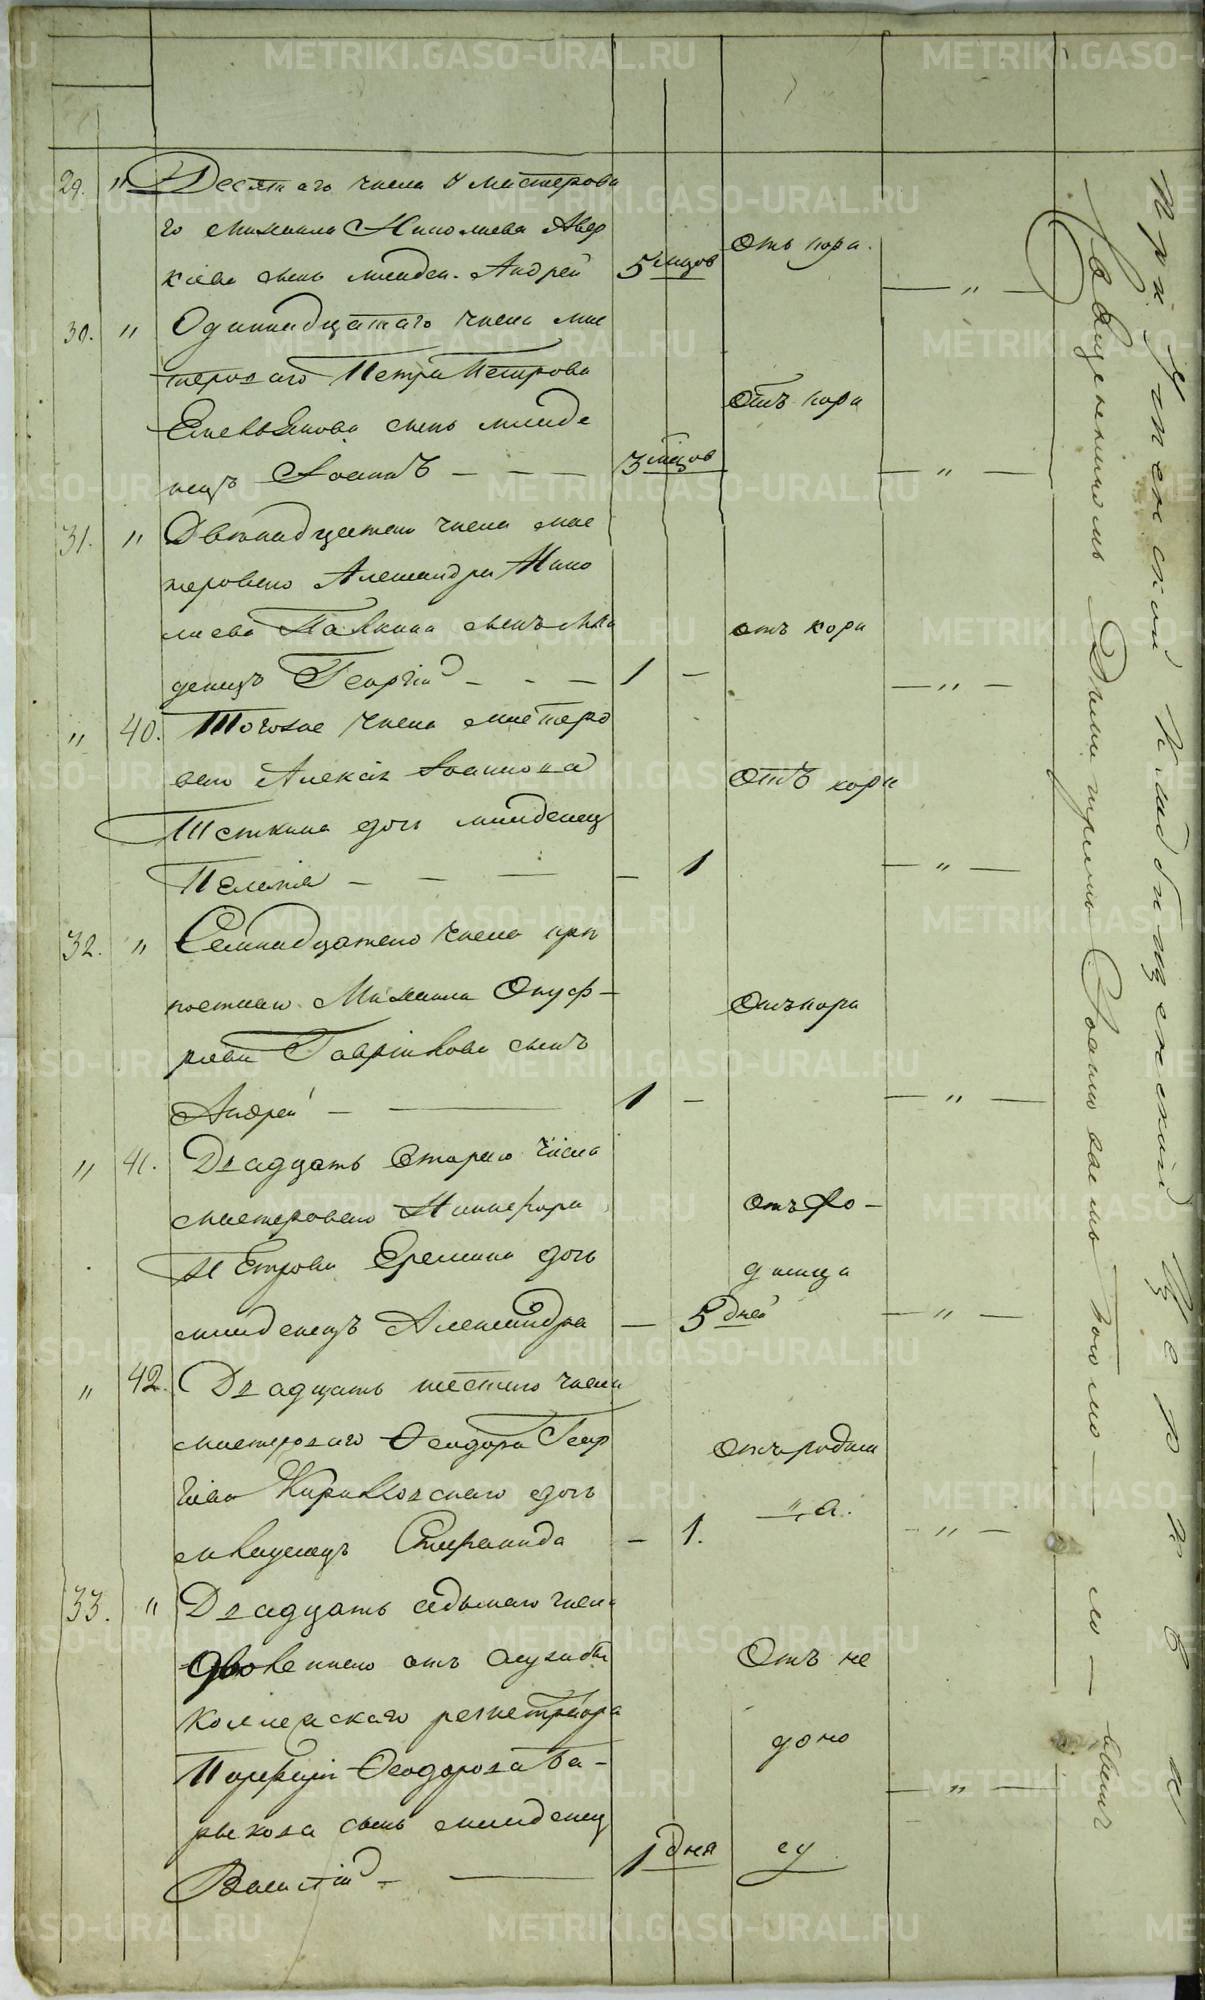 29. " Десятаго числа у мастерова
го Михаила Николаева Авер
кіева сынъ младен. Андрей 5 мцов отъ кори. — " —
30. " Одиннадцатаго числа мас
тероваго Петра Петрова
Емельянова сынъ младе
нецъ Іоаннъ — — — 3 мцов Отъ кори — " —
31. " Двенадцатаго числа мас
тероваго Александра Нико
лаева сынъ мла
денецъ Георгій - - — 1 — отъ кори — " —
" 40. Тогоже числа мастеро
ваго Алексія Іоаннова
Теткина дочь младенец
Пелагія — — — — 1 Отъ кори — " —
32. " Семнадцатаго числа кре
постнаго Михаила Онуф-
ріева Гаврикова сынъ
Андрей — — 1 — Отъ кори — " —
" 41. Двадцать втораго числа
мастероваго Никифора
Петрова Еремина дочь
младенецъ Александра — 5 дней отъ ро-
димца — " —
" 42. Двадцать шестаго числа
мастероваго Ѳеодора Геор
гіева дочь
младенецъ — 1. Отъ родим
ца. — " —
33. " Двадцать седьмаго числа
отъ службы
Коллежскаго регистратора
Порфирія Ѳеодорова Ба-
рыкова сынъ младенец
Василій — — 1 дня Отъ не
доно
су — " —
Священникомъ Димитріемъ Іоанновымъ
При Уктусской Кладбищенской Церкви
METRIKI.GASO-URAL.RU